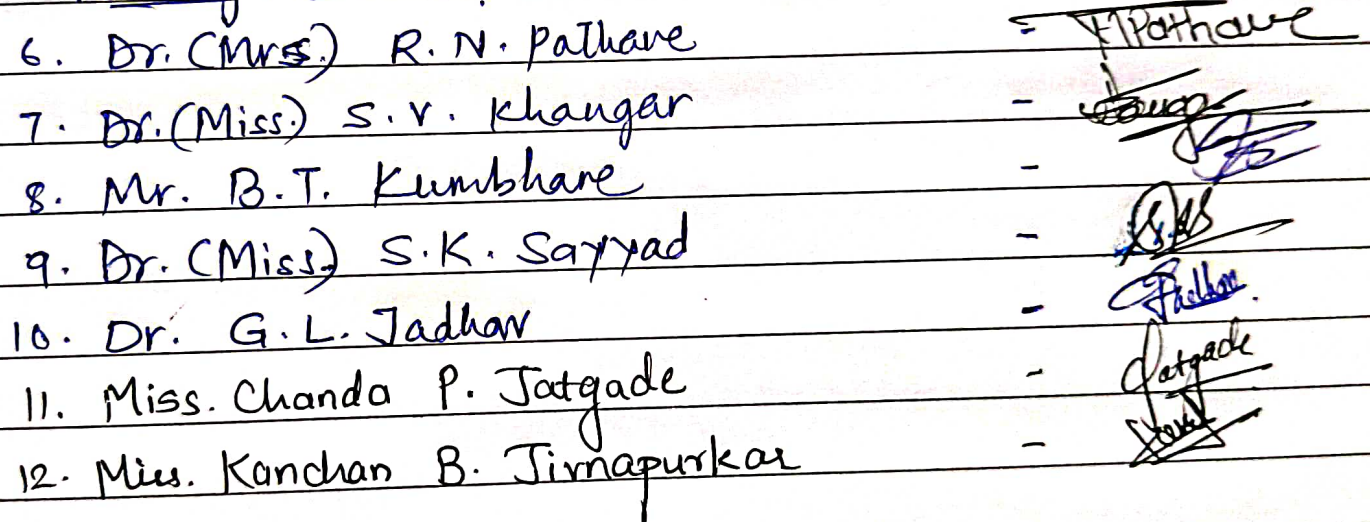 6. Dr. (Mrs.) R. N. Pathave = Pathave
7. Dr. (Miss.) S. V. Khangar -
8. Mr. B. T. Kumbhare -
9. Dr. (Miss.) S. K. Sayyad -
10. Dr. G. L. Jadhav - Jadhav.
11. Miss. Chanda P. Jatgade - Jatgade
12. Miss. Kanchan B. Jirnapurkar -